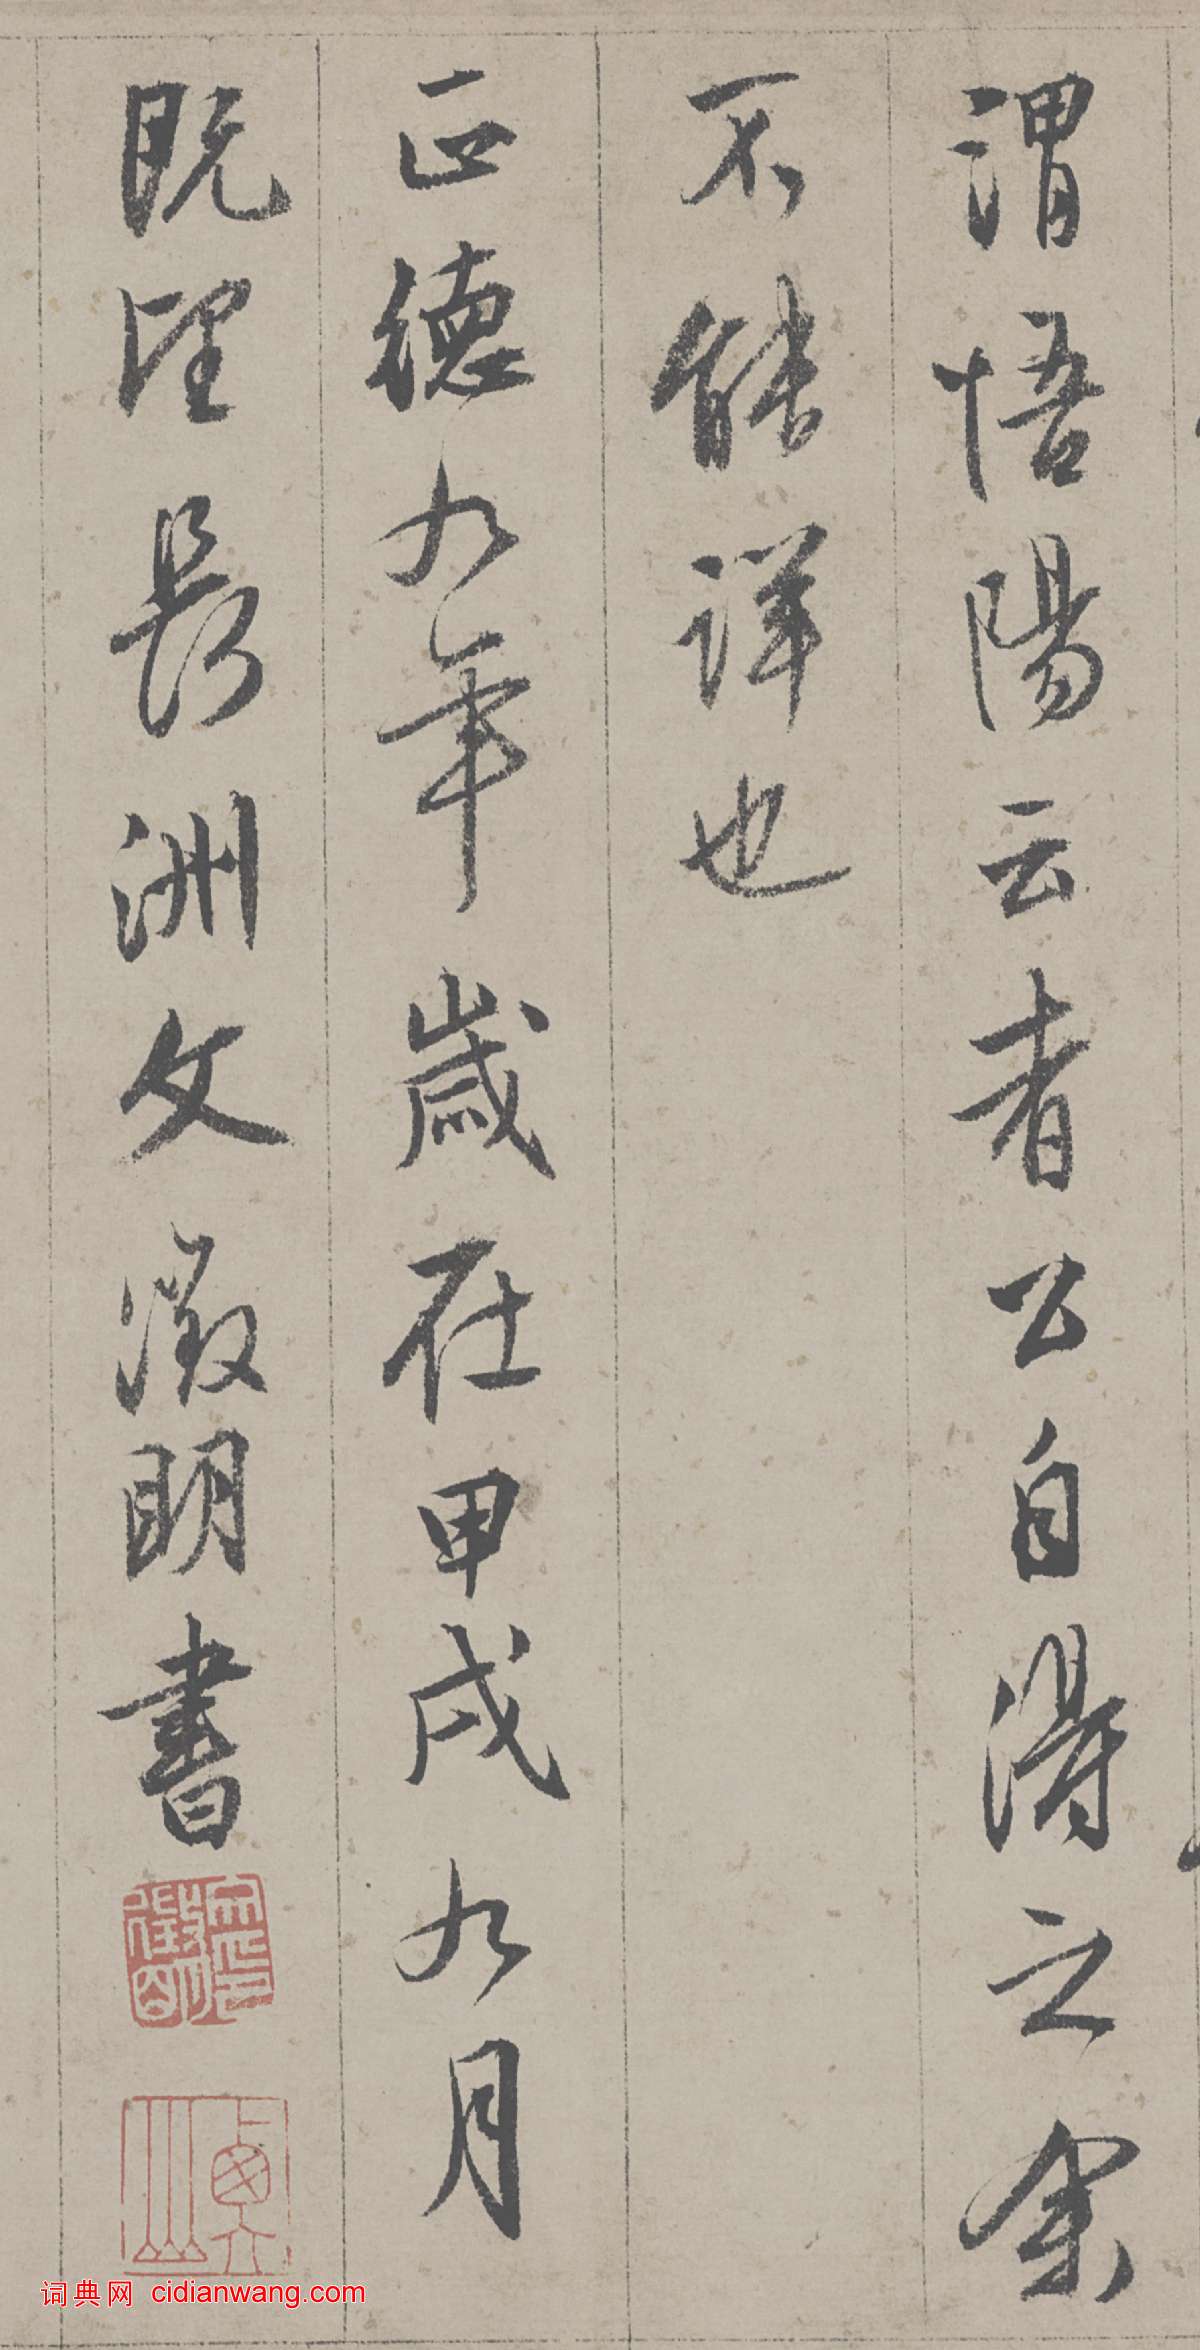 謂悟陽云者公自得之余
不能詳也
正德九年歲在甲戌九月
既望長洲文徵明書
詞典网 cidianwang.com